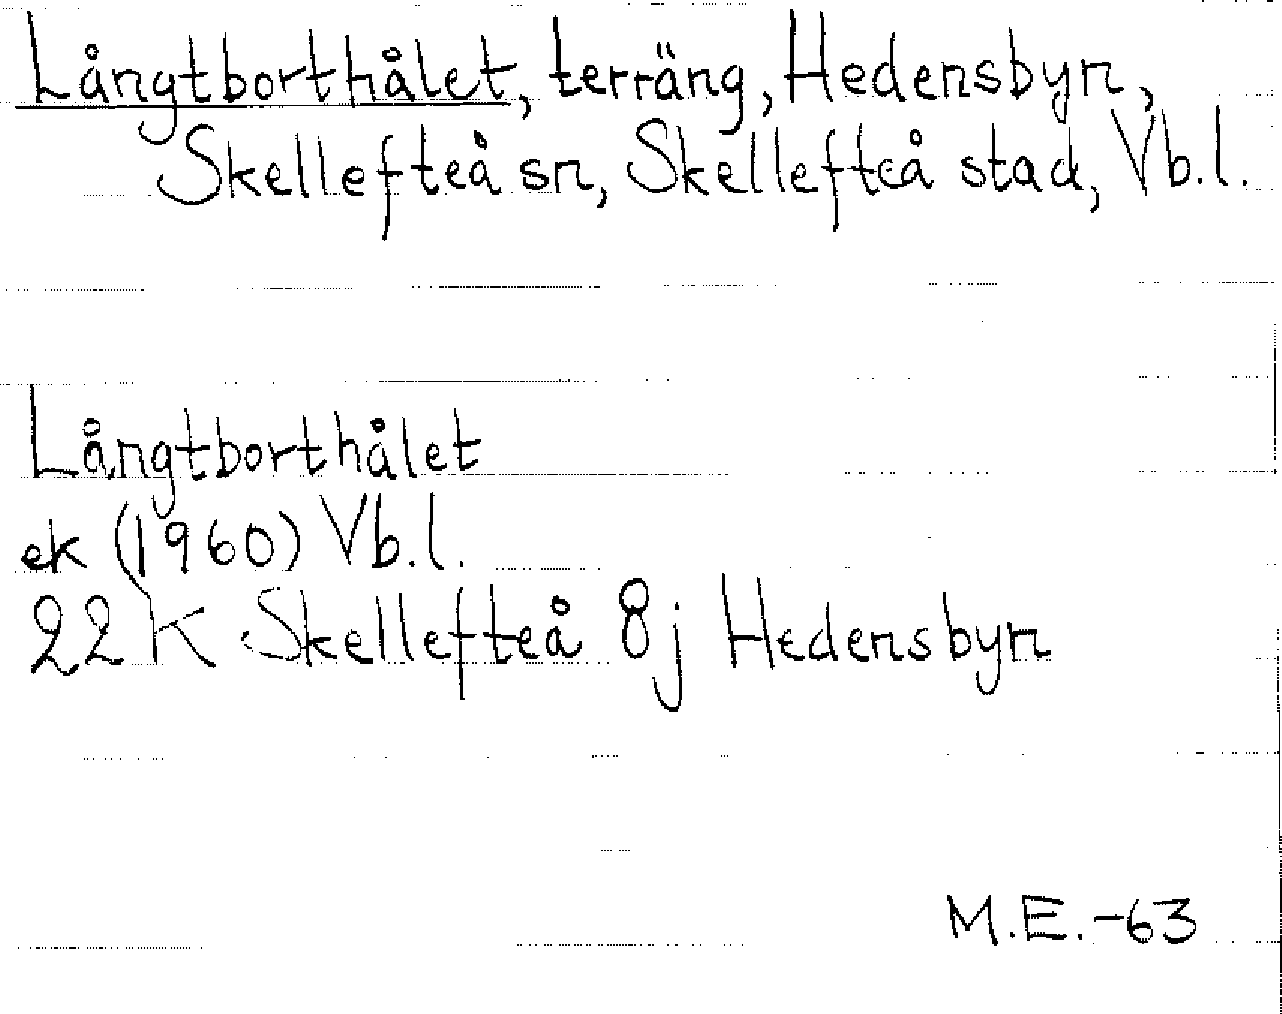 Långtborthålet, terräng, Hedensbyn,
Skellefteå sn, Skellefteå stad, Vb.l.
Långtborthålet
ek (1960) Vb.l.
22 K Skellefteå 8j Hedensbyn
M.E.-63